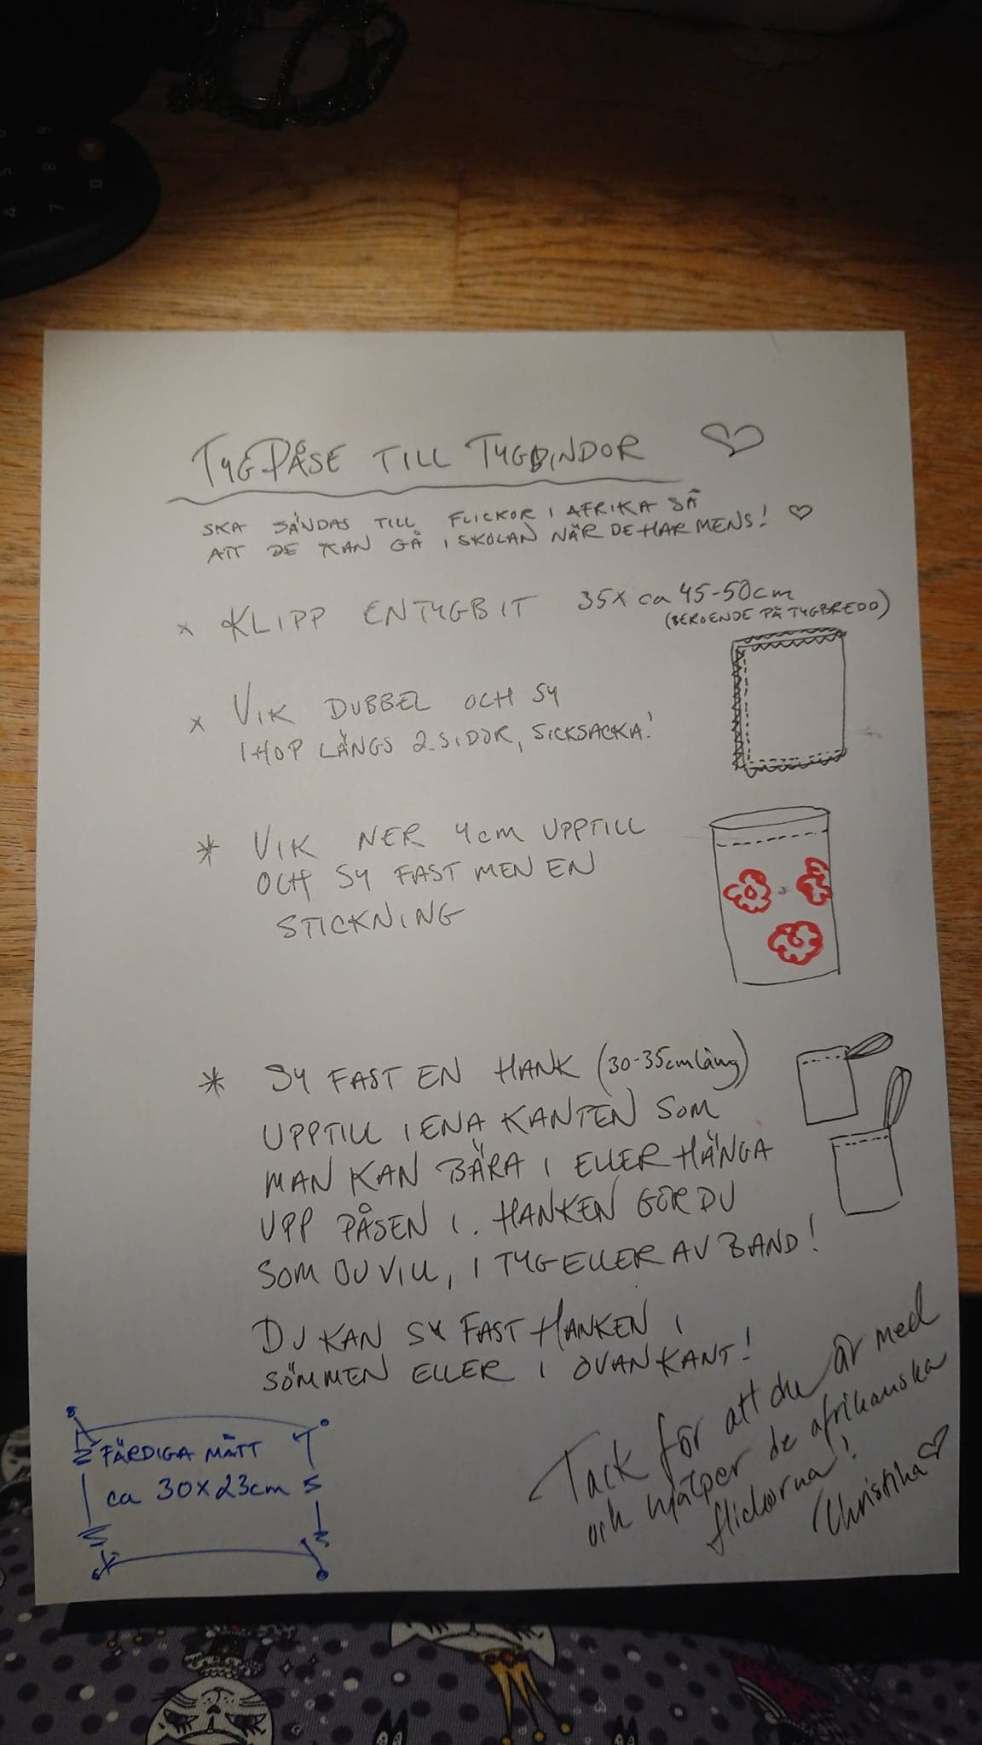 TYGPÅSE TILL TYGBINDOR
SKA SÄNDAS TILL FLICKOR I AFRIKA SÅ
ATT DE KAN GÅ I SKOLAN NÄR DE HAR MENS!
x KLIPP EN TYGBIT 35x ca 45-50cm
(BEROENDE PÅ TYGBREDD)
x VIK DUBBEL OCH SY
IHOP LÄNGS 2 SIDOR, SICKSACKA!
* VIK NER 4cm UPPTILL
OCH SY FAST MEN EN
STICKNING
* SY FAST EN HANK (30-35cm lång)
UPPTILL I ENA KANTEN SOM
MAN KAN BÄRA I ELLER HÄNGA
UPP PÅSEN I. HANKEN GÖR DU
SOM DU VILL, I TYG ELLER AV BAND!
DU KAN SY FAST HANKEN I
SÖMMEN ELLER I OVANKANT!
FÄRDIGA MÅTT
ca 30x23cm
Tack för att du är med
och hjälper de afrikanska
flickorna!
Christina